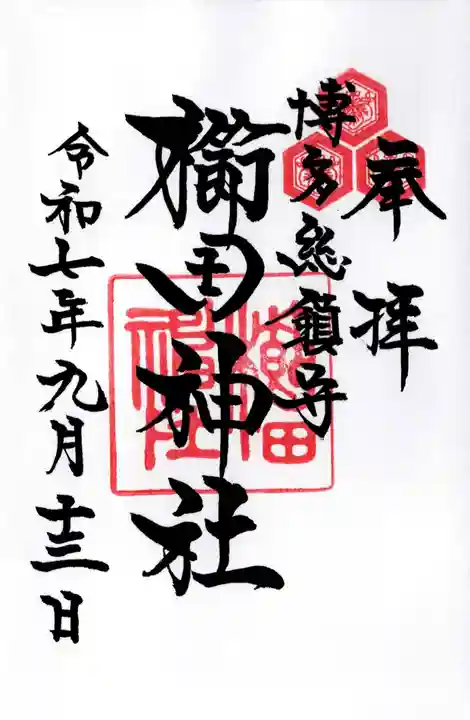 奉拝
博多総鎮守
櫛田神社
櫛田神社
令和七年九月十三日